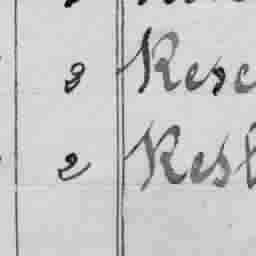 3 Rese
2 Resl